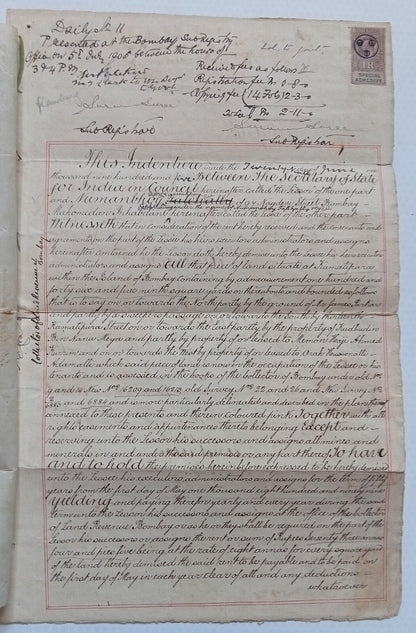 Daily No 11
Presented at the Bombay Sub Registry
Office on 5th July 1905 between the hours of
3 & 4 P.M.
Received fees as follows
Registration fee Rs 0-8-
Copying fee (1470b) 2-3-
Total Rs 2-11-0
Sub Registrar
Sub Registrar
1R
SPECIAL
ADHESIVE
Collector of Land Revenue at Bombay
This Indenture made the Twenty June one
thousand nine hundred and five Between The Secretary of State
for India in Council hereinafter called the Lessor of the one part
and Numanbhoy of Nagdevi Street Bombay
Mahomedan Inhabitant hereinafter called the Lessee of the other part
Witnesseth that in consideration of the rent hereby reserved and the covenants and
agreements on the part of the Lessee his heirs executors administrators and assigns
hereinafter contained he the Lessor doth hereby demise unto the Lessee his heirs executors
administrators and assigns All that piece of land situate at Kamatipura
within the Island of Bombay containing by admeasurement one hundred and
forty six and five ninth square yards or thereabouts and bounded as follows
that is to say on or towards the North partly by the ground of
and partly by a sweeper's passage on or towards the South by the
Kamatipura Street on or towards the East partly by the property of
and partly by property of or leased to Memon Haji Ahmed
and on or towards the West by property of or leased to
which said piece of land is now in the occupation of the Lessee his
tenants and is assessed in the books of the Collector of Bombay under old No
9 and 14 New Nos 14209 and 14213 old Survey Nos 22 and 26 and New Survey Nos
and 6884 and is more particularly delineated and described in the plan
annexed to these presents and therein coloured pink Together with all
rights easements and appurtenances thereto belonging Except and
reserving unto the Lessor his successors and assigns all mines and
minerals in and under the said premises or any part thereof To have
and to hold the premises hereinbefore expressed to be hereby demised
unto the Lessee his executors administrators and assigns for the term of fifty
years from the first day of May one thousand eight hundred and ninety six
yielding and paying therefor yearly and every year during the said
term unto the Lessor his successors and assigns at the office of the Collector
of Land Revenue Bombay or as he or they shall be required on the part of the
Lessor his successors or assigns the rent or sum of Rupees Seventy three annas
four and pies five being at the rate of eight annas for every square yard
of the land hereby demised the said rent to be payable and to be paid on
the first day of May in each year clear of all and any deductions
whatsoever